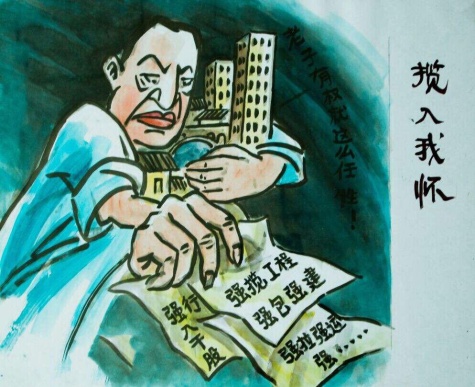 揽入我怀
老子有权就这么任性！
强揽工程
强包强建
强行
入干股
强拉强运
强……